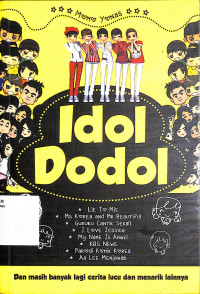 Momo Yonas
Idol
Dodol
Lie To Me
Ms Korea and Mr Beautiful
Guruku Cantik Sekali
I Love Jessica
My Name Is Angel
KBS News
Parodi Komik Korea
Aa Lee Menjawab
Dan masih banyak lagi cerita lucu dan menarik lainnya